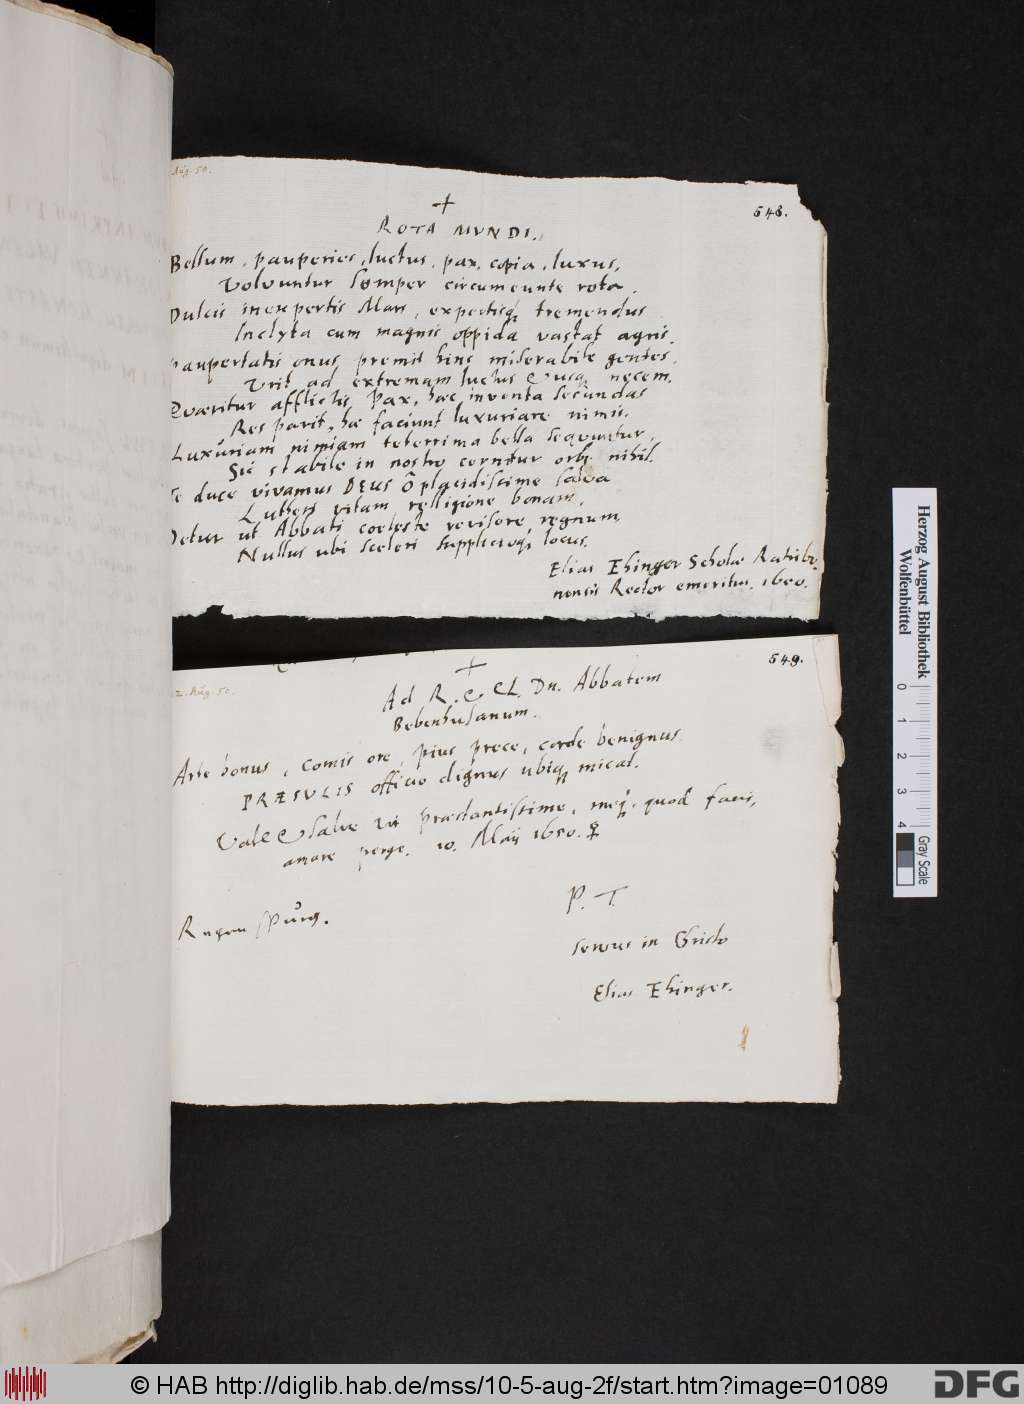 Aug. 50.
548.
+
ROTA MVNDI.
Bellum, pauperies, luctus, pax, copia, luxus,
Volvuntur semper circumeunte rota.
Dulcis inexpertis Mars, expertisq₃ tremendus
Inclyta cum magnis oppida vastat agris.
Paupertatis onus premit hinc miserabile gentes,
Vrit ad extremam luctus & usq₃ necem.
Quæritur afflictis Pax, hæc inventa secundas
Res parit, hæ faciunt luxuriare nimis.
Luxuriam nimiam teterrima bella sequuntur,
Sic stabile in nostro cernitur orbe nihil.
Te duce vivamus DEUS ô placidissime salva
Lutheri vitam relligione bonam.
Detur ut Abbati coeleste revisere regnum,
Nullus ubi sceleri supplicioq₃ locus.
Elias Ehinger Scholæ Ratisbo-
nensis Rector emeritus. 1650.
2. Aug. 50.
549.
+
Ad R. & CL. Dn. Abbatem
Bebenhusanum.
Arte bonus, comis ore, pius prece, corde benignus
PRÆSULIS officio dignus ubiq₃ micat.
Vale & salve Vir præstantissime, meq₃, quod facis,
amare perge. 10. Maij 1650. ♀
Regenspurg.
P. T.
servus in Christo
Elias Ehinger.
Herzog August Bibliothek
Wolfenbüttel
0 1 2 3 4
Gray Scale
© HAB http://diglib.hab.de/mss/10-5-aug-2f/start.htm?image=01089
DFG